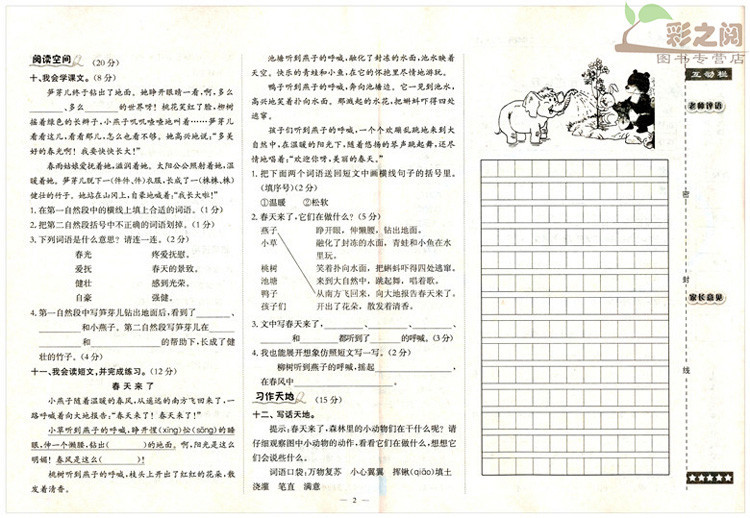 阅读空间 (20 分)
十、我会学课文。(8 分)
笋芽儿终于钻出了地面。她睁开眼睛一看,啊,多么
________、多么________的世界呀! 桃花笑红了脸,柳树
摇着绿色的长辫子,小燕子叽叽喳喳地叫着……笋芽儿
看看这儿,看看那儿,怎么也看不够。她高兴地说:“多美
好的春光啊! 我要快快长大!”
春雨姑娘爱抚着她,滋润着她。太阳公公照射着她,温
暖着她。笋芽儿脱下一(件件、件)衣服,长成了一(株株、株)
健壮的竹子。她站在山冈上,自豪地喊着:“我长大啦!”
1. 在第一自然段中的横线上填上合适的词语。(1 分)
2. 把第二自然段括号中不正确的词语划掉。(1 分)
3. 下列词语是什么意思? 请连一连。(2 分)
春光 疼爱抚慰。
爱抚 春天的景致。
健壮 感到光荣。
自豪 强健。
4. 第一自然段中写笋芽儿钻出地面后,看到了________、
________和小燕子。第二自然段写笋芽儿在________
________和________的帮助下,长成了健
壮的竹子。(4 分)
十一、我会读短文,并完成练习。(12 分)
春天来了
小燕子随着温暖的春风,从遥远的南方飞回来了,一
路呼喊着向大地报告:“春天来了! 春天来了!”
小草听到燕子的呼喊,睁开惺(xīng)忪(sōng)的睡
眼,伸一个懒腰,钻出( )的地面。啊,阳光是这么
明媚! 春风是这么( )!
桃树听到燕子的呼喊,枝头上开出了红红的花朵,散
发着清香。
池塘听到燕子的呼喊,融化了封冻的水面,池水映着
天空。快乐的青蛙和小鱼,在它的怀抱里尽情地游玩。
鸭子听到燕子的呼喊,奔向池塘边。它一见到池水,
高兴地笑着扑向水面。那溅起的水花,把蝌蚪吓得四处
逃窜。
孩子们听到燕子的呼喊,一个个欢蹦乱跳地来到大
自然中,在温暖的阳光下,随着悠扬的琴声跳起舞,还尽
情地唱着:“欢迎你呀,美丽的春天。”
1. 把下面两个词语送回短文中画横线句子的括号里。
(填序号)(2 分)
①温暖 ②松软
2. 春天来了,它们在做什么? (5 分)
燕子 睁开眼,伸懒腰,钻出地面。
小草 融化了封冻的水面,青蛙和小鱼在水
里玩。
桃树 笑着扑向水面,把蝌蚪吓得四处逃窜。
池塘 来到大自然中,跳起舞,唱着歌。
鸭子 从南方飞回来,向大地报告春天来了。
孩子们 开出了花朵,散发着清香。
3. 文中写春天来了,________、________、________、
________和________都听到了________的呼喊。(3 分)
4. 我也能展开想象仿照短文写一写。(2 分)
柳树听到燕子的呼喊,摇起________________,
在春风中________________。
习作天地 (15 分)
十二、写话天地。
提示:春天来了,森林里的小动物们在干什么呢? 请
仔细观察图中小动物的动作,看看它们在做什么,想想它
们会说些什么。
词语口袋:万物复苏 小心翼翼 挥锹(qiāo)填土
浇灌 笔直 满意
— 2 —
彩之阅
图书专营店
互动栏
老师评语
密
封
家长意见
线
★★★★★